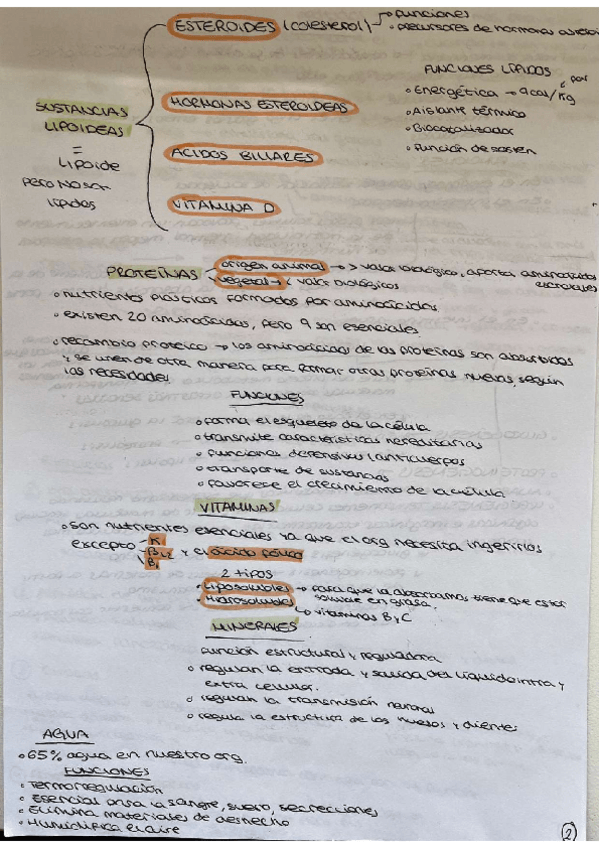 ESTEROIDES (colesterol) → ∘ funciones
∘ precursores de hormonas
SUSTANCIAS
LIPOIDEAS
=
LIPOIDE
PERO NO SON
LÍPIDOS
HORMONAS ESTEROIDEAS
ÁCIDOS BILIARES
VITAMINA D
FUNCIONES LÍPIDOS
∘ Energética → 9cal/Kg por
∘ Aislante térmico
∘ Biocatalizador
∘ Función de sostén
PROTEÍNAS
origen animal → > valor biológico, aporta aminoácidos esenciales
vegetal → < valor biológicos
∘ nutrientes plásticos formados por aminoácidos.
∘ existen 20 aminoácidos, pero 9 son esenciales
∘ recambio proteico → los aminoácidos de las proteínas son absorbidas
y se unen de otra manera para formar otras proteínas nuevas, según
las necesidades
FUNCIONES
∘ forma el esqueleto de la célula
∘ transmite características hereditarias
∘ funciones defensivas (anticuerpos
∘ transporte de sustancias
∘ favorece el crecimiento de la célula
VITAMINAS
∘ son nutrientes esenciales ya que el org necesita ingerirlos
excepto K
B12 y el ácido fólico
2 tipos
∘ Liposolubles → para que la absorbamos tiene que estar
soluble en grasa.
∘ Hidrosolubles
↳ vitaminas B y C
MINERALES
función estructural y reguladora
∘ regulan la entrada y salida del líquido intra y
extra celular.
∘ regulan la transmisión neuronal
∘ regula la estructura de los huesos y dientes
AGUA
∘ 65% agua en nuestro org.
FUNCIONES
∘ Termorregulación
∘ Esencial para la sangre, suero, secrecciones
∘ Elimina materiales de deshecho
∘ Humidifica el aire
2